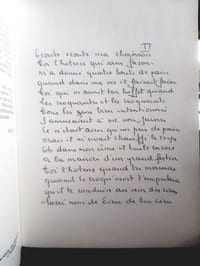 II
Ecoute ecoute ma chanson
Toi l'hotesse qui sans facon
M'a donné quatre bouts de pain
quand dans ma vie il faisait faim
Toi qui m'ouvrit ton buffet quand
les croquantes et les croquants
Tous les gens bien intentionnés
s'amusaient à me voir jeuner
Ce n'etait rien qu'un peu de pain
Mais il m'avait chauffé le corps
Et dans mon ame il brule encore
a la maniere d'un grand festin
Toi l'hotesse quand tu mourras
quand le croqu'mort t'emportera
qu'il te conduise au sein du
de